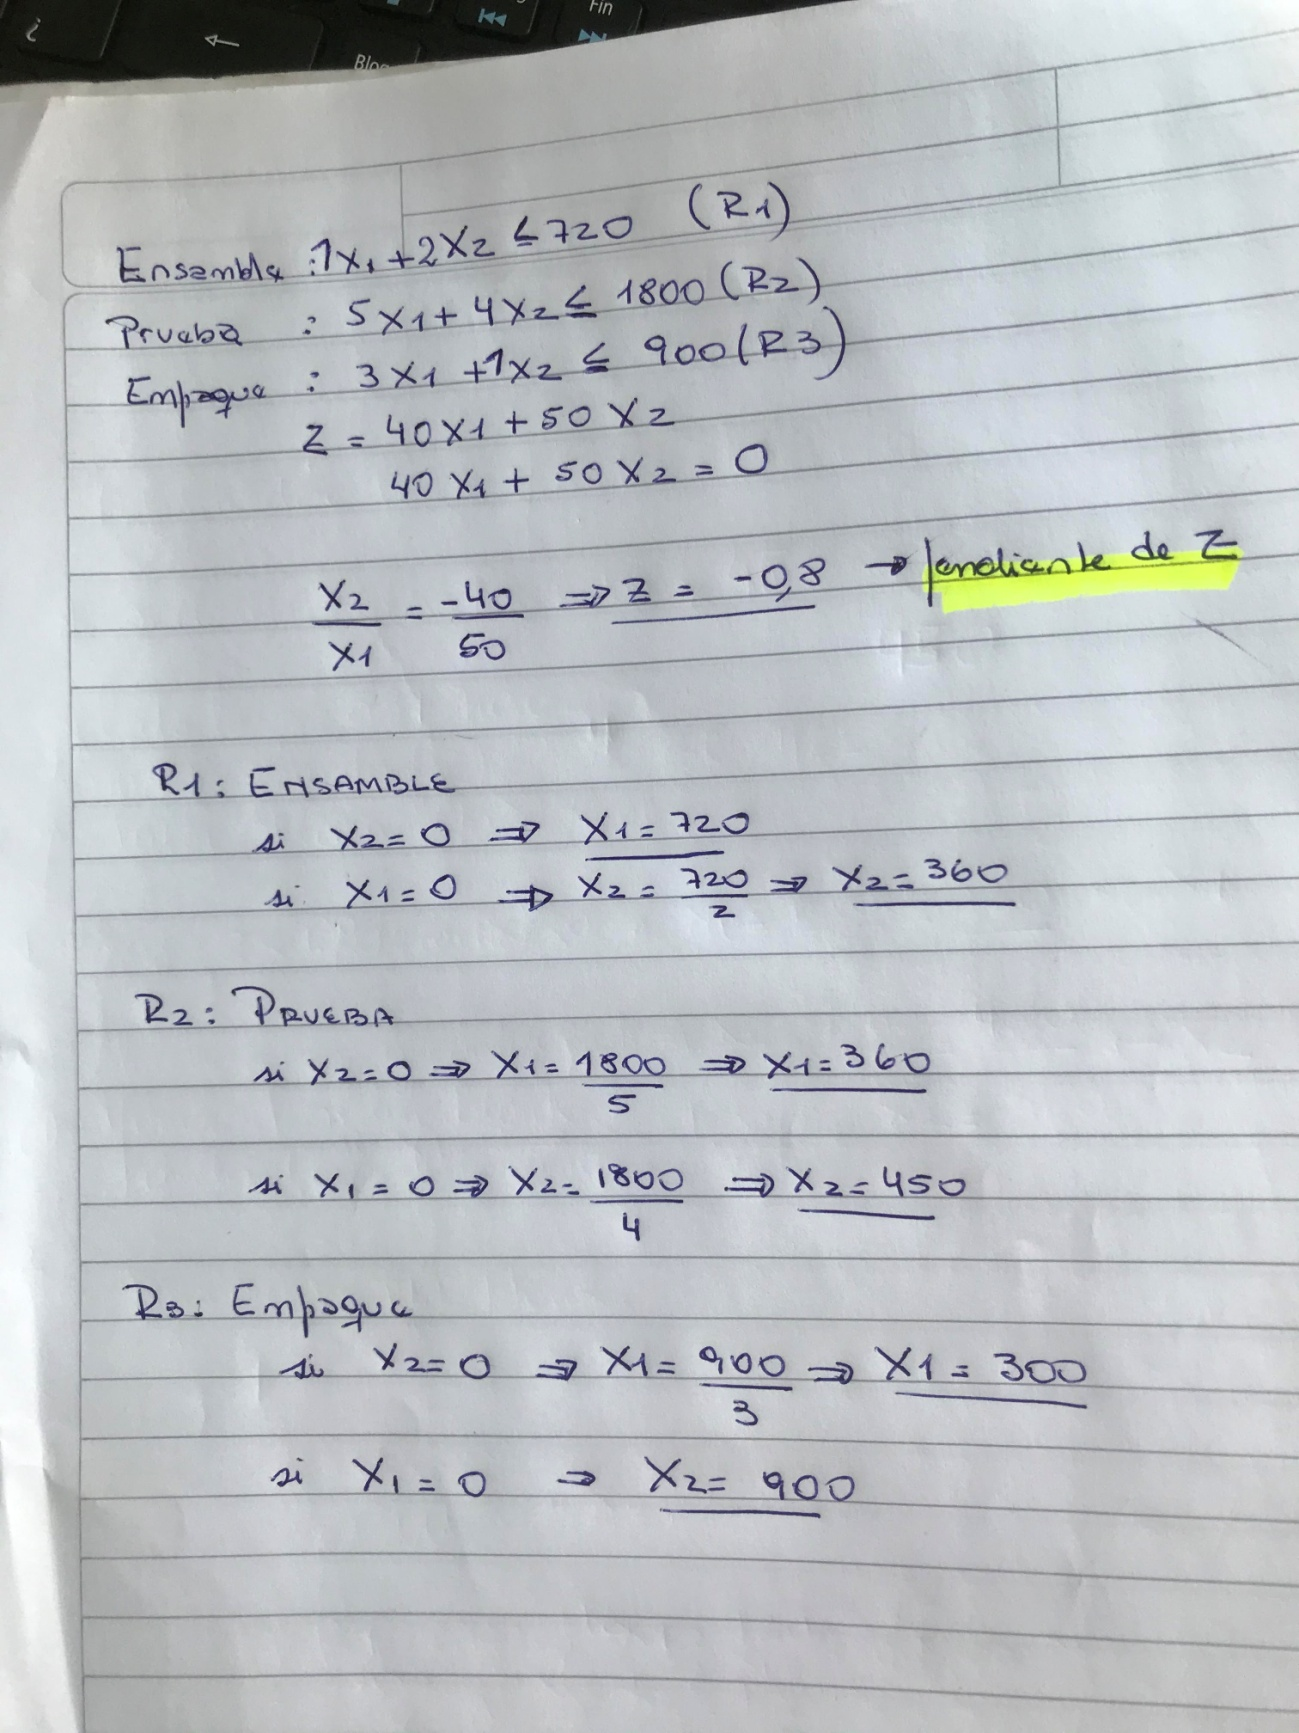 ¿
Fin
Bloq
Ensambla : 1X1 + 2X2 ≤ 720 (R1)
Prueba : 5X1 + 4X2 ≤ 1800 (R2)
Empaque : 3X1 + 1X2 ≤ 900 (R3)
Z = 40X1 + 50X2
40X1 + 50X2 = 0
X2/X1 = -40/50 ⇒ Z = -0,8 → pendiente de Z
R1: ENSAMBLE
si X2=0 ⇒ X1=720
si X1=0 ⇒ X2 = 720/2 ⇒ X2=360
R2: PRUEBA
si X2=0 ⇒ X1=1800/5 ⇒ X1=360
si X1=0 ⇒ X2=1800/4 ⇒ X2=450
R3: Empaque
si X2=0 ⇒ X1=900/3 ⇒ X1=300
si X1=0 ⇒ X2=900